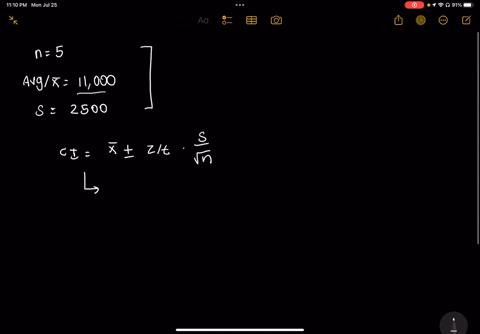 11:10 PM Mon Jul 25
91%
Aa
n = 5
Avg/x̄ = 11,000
S = 2500
CI = x̄ ± z/t · S/√n